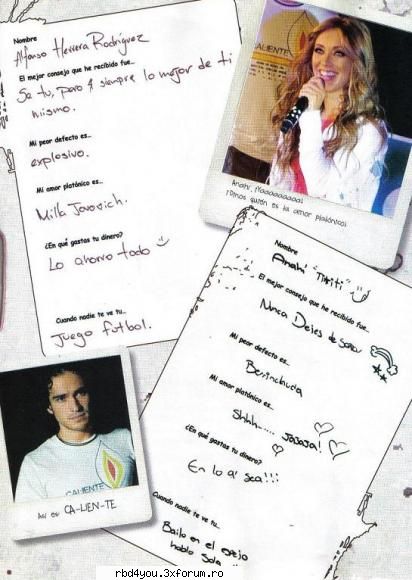 Nombre
Alfonso Herrera Rodríguez
El mejor consejo que he recibido fue...
Se tu, pero siempre lo mejor de ti
mismo.
Mi peor defecto es...
explosivo.
Mi amor platónico es...
Milla Jovovich.
¿En qué gastas tu dinero?
Lo ahorro todo
Cuando nadie te ve tu...
Juego futbol.
CALIENTE
Anahí,
¡Dinos quién es tu amor platónico!
Nombre
Anahí "Tititi"
El mejor consejo que he recibido fue...
Nunca Dejes de soñar
Mi peor defecto es...
Berrinchuda
Mi amor platónico es...
Shhh..... Jajaja!
¿En qué gastas tu dinero?
En lo q' sea!!!
Cuando nadie te ve tu...
Bailo en el espejo
hablo Sola
CALIENTE
Así es CA-LIEN-TE
rbd4you.3xforum.ro